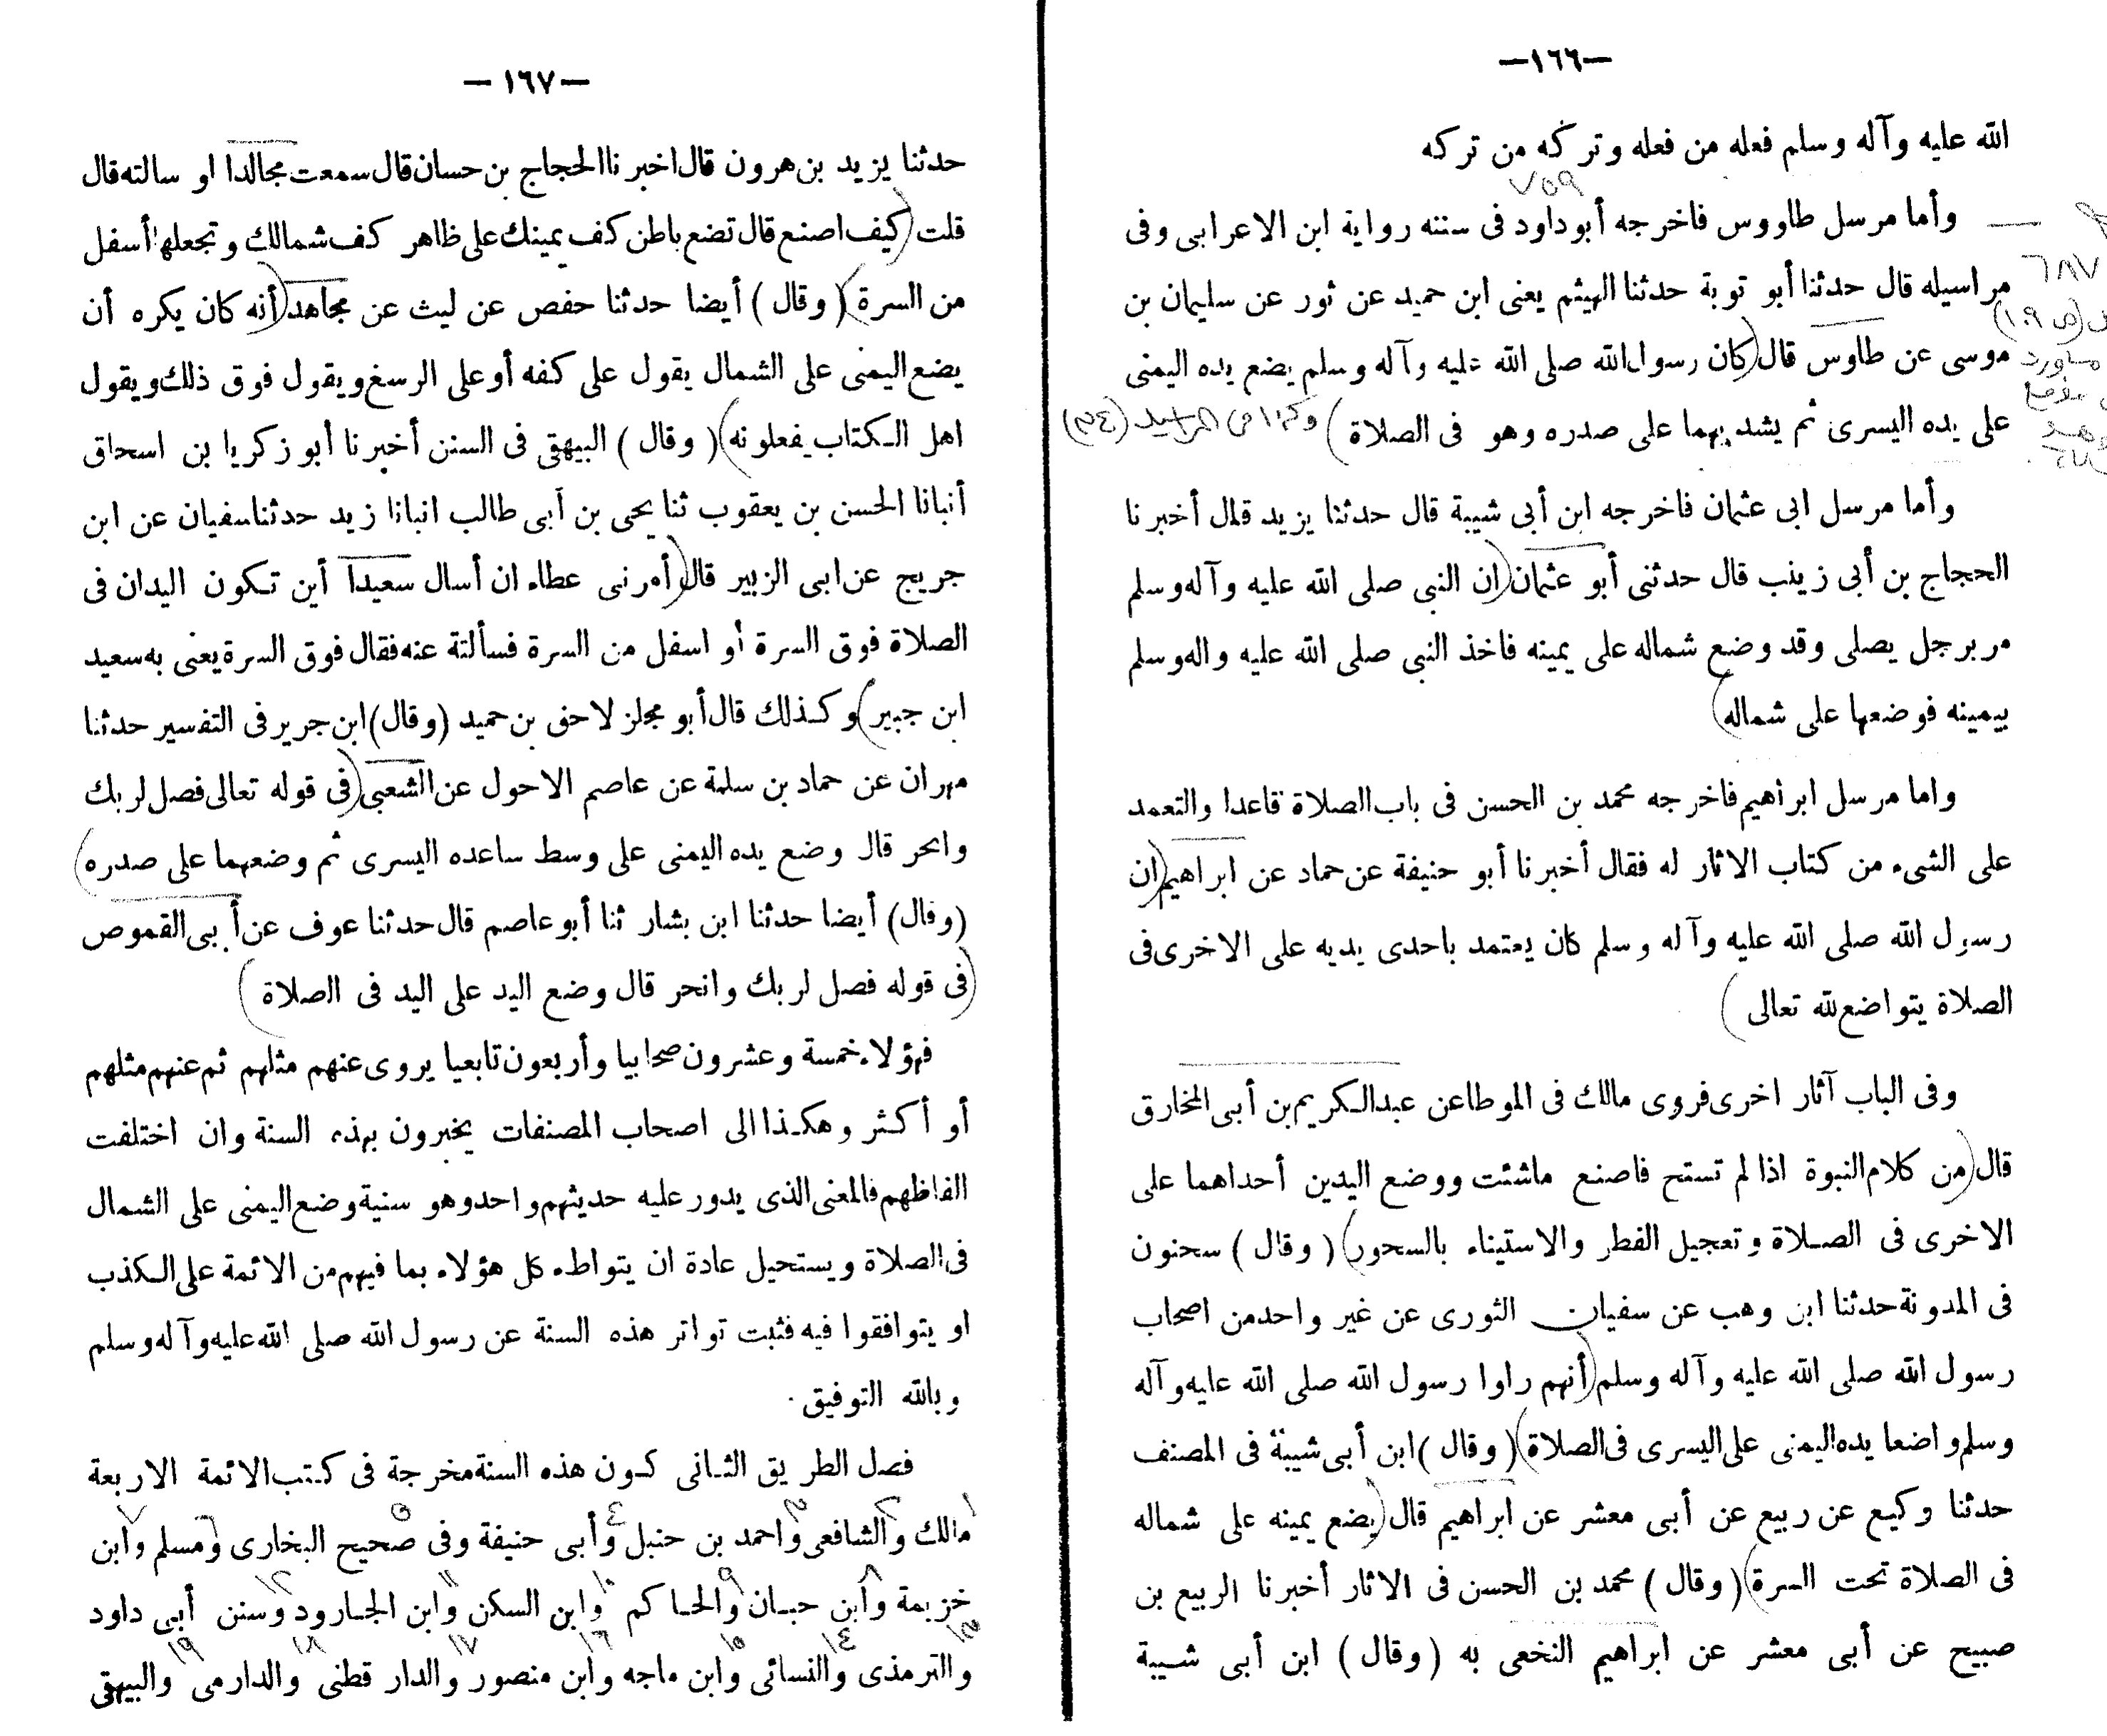 —١٦٦—
الله عليه وآله وسلم فعله من فعله وتركه من تركه
٧٥٩
وأما مرسل طاووس فاخرجه أبو داود فى سننه رواية ابن الاعرابى وفى
مراسيله قال حدثنا أبو توبة حدثنا الهيثم يعنى ابن حميد عن ثور عن سليمان بن
موسى عن طاوس قال (كان رسول الله صلى الله عليه وآله وسلم يضع يده اليمنى
على يده اليسرى ثم يشد بهما على صدره وهو فى الصلاة)
وأما مرسل ابى عثمان فاخرجه ابن أبى شيبة قال حدثنا يزيد قال أخبرنا
الحجاج بن أبى زينب قال حدثنى أبو عثمان (ان النبى صلى الله عليه وآله وسلم
مر برجل يصلى وقد وضع شماله على يمينه فاخذ النبى صلى الله عليه واله وسلم
بيمينه فوضعها على شماله)
واما مرسل ابراهيم فاخرجه محمد بن الحسن فى باب الصلاة قاعدا والتعمد
على الشىء من كتاب الاثار له فقال أخبرنا أبو حنيفة عن حماد عن ابراهيم (ان
رسول الله صلى الله عليه وآله وسلم كان يعتمد باحدى يديه على الاخرى فى
الصلاة يتواضع لله تعالى)
وفى الباب آثار اخرى فروى مالك فى الموطا عن عبد الكريم بن أبى المخارق
قال (من كلام النبوة اذا لم تستح فاصنع ماشئت ووضع اليدين أحداهما على
الاخرى فى الصلاة وتعجيل الفطر والاستيناء بالسحور) (وقال) سحنون
فى المدونة حدثنا ابن وهب عن سفيان الثورى عن غير واحد من اصحاب
رسول الله صلى الله عليه وآله وسلم (أنهم راوا رسول الله صلى الله عليه وآله
وسلم واضعا يده اليمنى على اليسرى فى الصلاة) (وقال) ابن أبى شيبة فى المصنف
حدثنا وكيع عن ربيع عن أبى معشر عن ابراهيم قال (يضع يمينه على شماله
فى الصلاة تحت السرة) (وقال) محمد بن الحسن فى الاثار أخبرنا الربيع بن
صبيح عن أبى معشر عن ابراهيم النخعى به (وقال) ابن أبى شيبة
—١٦٧—
حدثنا يزيد بن هرون قال اخبرنا الحجاج بن حسان قال سمعت مجالدا او سالته قال
قلت (كيف اصنع قال تضع باطن كف يمينك على ظاهر كف شمالك وتجعلها أسفل
من السرة) (وقال) أيضا حدثنا حفص عن ليث عن مجاهد (أنه كان يكره أن
يضع اليمنى على الشمال يقول على كفه أو على الرسغ ويقول فوق ذلك ويقول
اهل الكتاب يفعلونه) (وقال) البيهقى فى السنن أخبرنا أبو زكريا بن اسحاق
أنبانا الحسن بن يعقوب ثنا يحيى بن أبى طالب انبانا زيد حدثنا سفيان عن ابن
جريج عن ابى الزبير قال (أمرنى عطاء ان أسال سعيدا أين تكون اليدان فى
الصلاة فوق السرة أو اسفل من السرة فسألتة عنه فقال فوق السرة يعنى به سعيد
ابن جبير) وكذلك قال أبو مجلز لاحق بن حميد (وقال) ابن جرير فى التفسير حدثنا
مهران عن حماد بن سلمة عن عاصم الاحول عن الشعبى (فى قوله تعالى فصل لربك
وانحر قال وضع يده اليمنى على وسط ساعده اليسرى ثم وضعهما على صدره)
(وقال) أيضا حدثنا ابن بشار ثنا أبو عاصم قال حدثنا عوف عن أبى القموص
(فى قوله فصل لربك وانحر قال وضع اليد على اليد فى الصلاة)
فهؤلاء خمسة وعشرون صحابيا وأربعون تابعيا يروى عنهم مثلهم ثم عنهم مثلهم
أو أكثر وهكذا الى اصحاب المصنفات يخبرون بهذه السنة وان اختلفت
الفاظهم فالمعنى الذى يدور عليه حديثهم واحد وهو سنية وضع اليمنى على الشمال
فى الصلاة ويستحيل عادة ان يتواطء كل هؤلاء بما فيهم من الائمة على الكذب
او يتوافقوا فيه فثبت تواتر هذه السنة عن رسول الله صلى الله عليه وآله وسلم
وبالله التوفيق.
فصل الطريق الثانى كون هذه السنة مخرجة فى كتب الائمة الاربعة
مالك والشافعى واحمد بن حنبل وأبى حنيفة وفى صحيح البخارى ومسلم وابن
خزيمة وابن حبان والحاكم وابن السكن وابن الجارود وسنن أبى داود
والترمذى والنسائى وابن ماجه وابن منصور والدار قطنى والدارمى والبيهقى